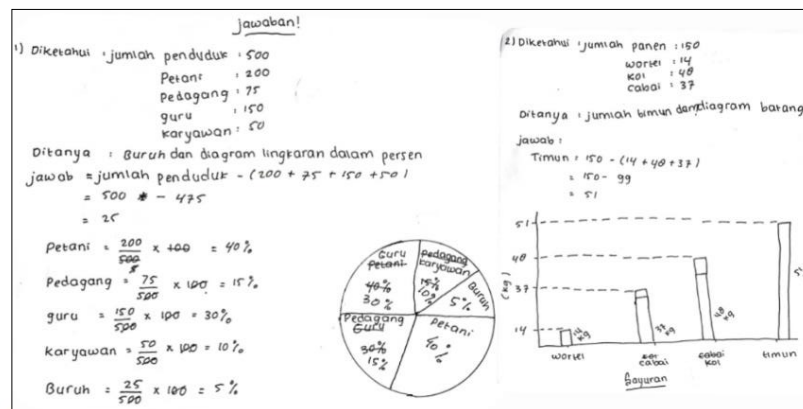 jawaban!
1) Diketahui : jumlah penduduk : 500
Petani : 200
Pedagang : 75
guru : 150
karyawan : 50
Ditanya : Buruh dan diagram lingkaran dalam persen
jawab = jumlah penduduk - (200 + 75 + 150 + 50)
= 500 - 475
= 25
Petani = 200/500 x 100 = 40%
Pedagang = 75/500 x 100 = 15%
guru = 150/500 x 100 = 30%
Karyawan = 50/500 x 100 = 10%
Buruh = 25/500 x 100 = 5%
Guru
Petani
40%
30%
Pedagang
karyawan
15%
10%
Buruh
5%
Pedagang
Guru
30%
15%
Petani
40%
2) Diketahui : jumlah panen : 150
wortel : 14
kol : 48
cabai : 37
Ditanya : jumlah timun dan diagram batang
jawab :
Timun : 150 - (14 + 48 + 37)
= 150 - 99
= 51
(kg)
51
48
37
14
14 kg
37 kg
48 kg
wortel
kol
cabai
cabai
kol
timun
Sayuran